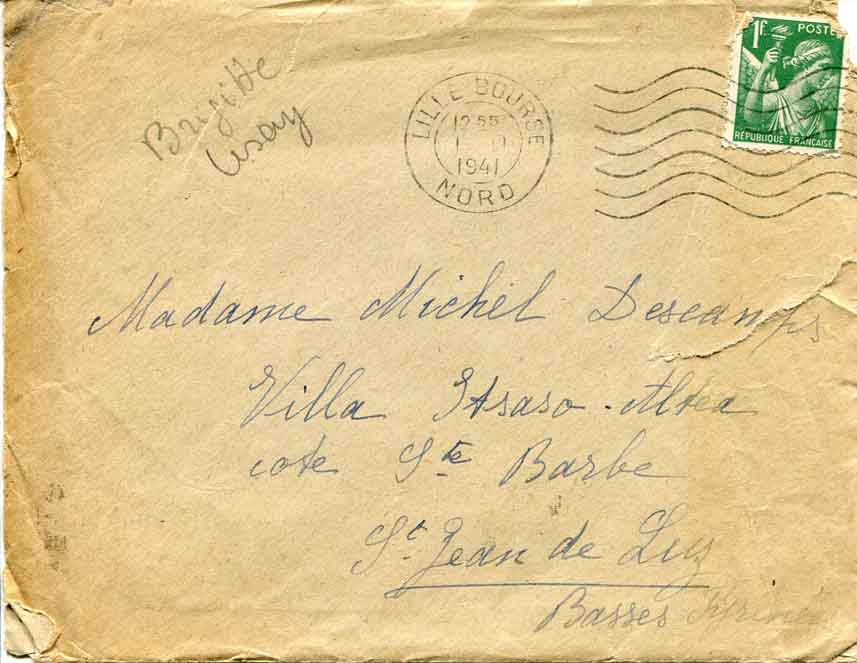 Brigitte
LILLE BOURSE
12 55
1941
NORD
1F POSTE
RÉPUBLIQUE FRANÇAISE
Madame Michel Descamps
Villa Itsaso-Altea
cote Ste Barbe
St Jean de Luz
Basses Pyrénées